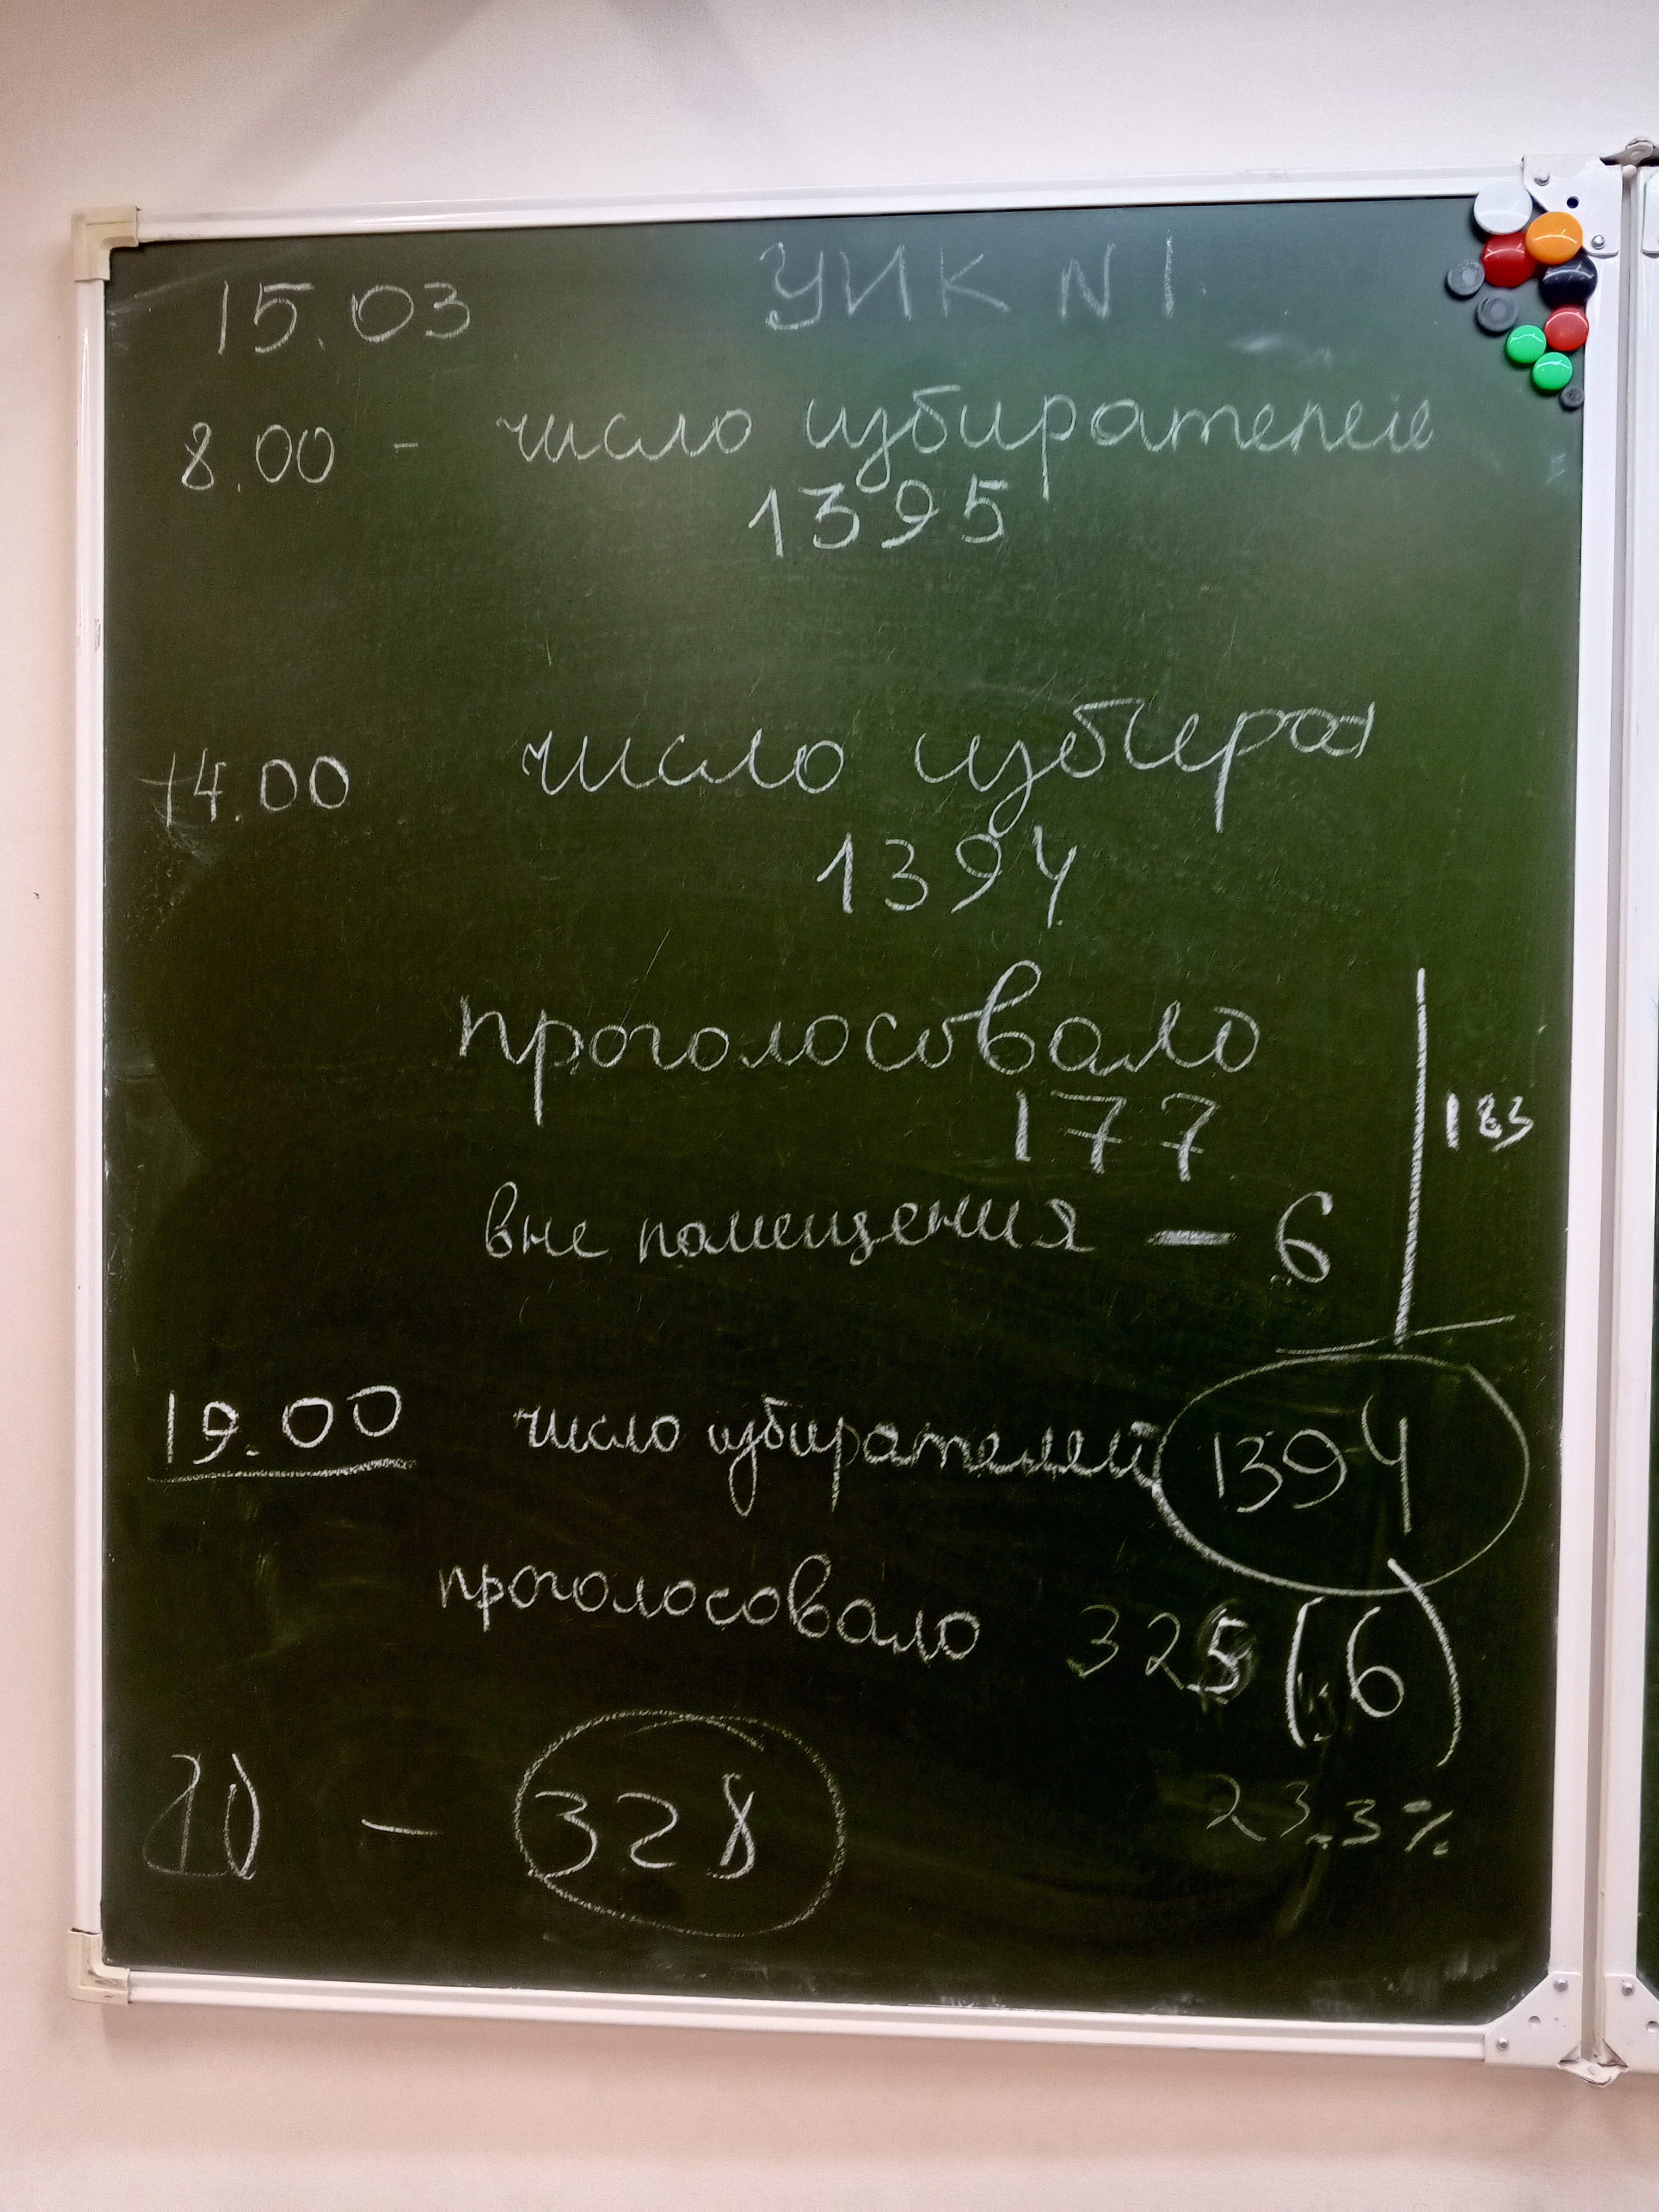 15.03 УИК N 1
8.00 - число избирателей
1395
14.00 число избират
1394
проголосовало
177
183
вне помещения - 6
19.00 число избирателей 1394
проголосовало 325 (6)
23.3%
20 - 328